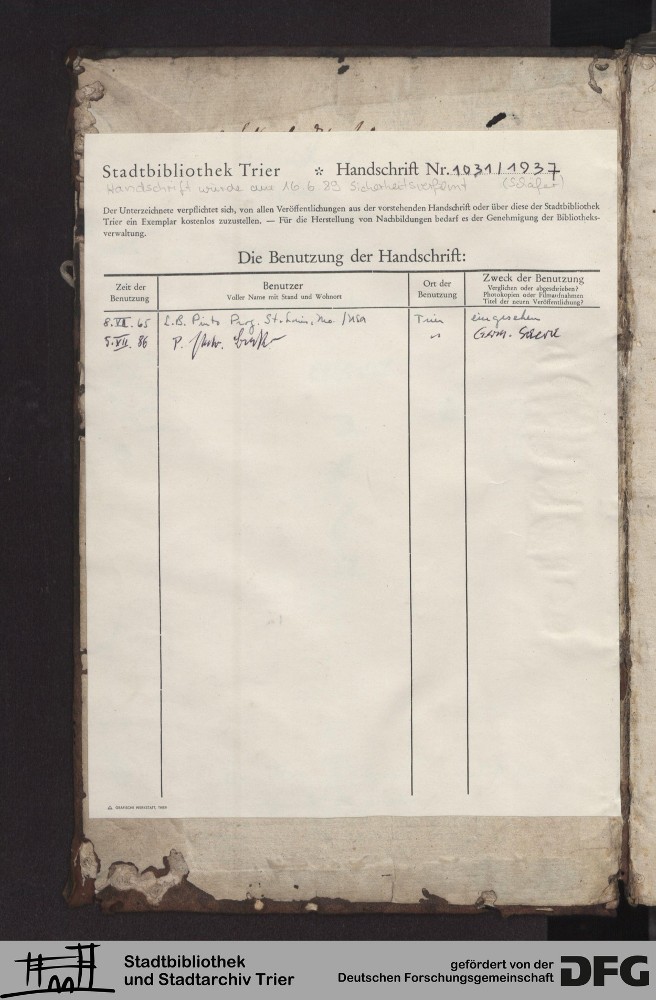 Stadtbibliothek Trier * Handschrift Nr. 1031/1937
Handschrift wurde am 16.6.89 Sicherheitsverfilmt (Schäfer)
Der Unterzeichnete verpflichtet sich, von allen Veröffentlichungen aus der vorstehenden Handschrift oder über diese der Stadtbibliothek
Trier ein Exemplar kostenlos zuzustellen. — Für die Herstellung von Nachbildungen bedarf es der Genehmigung der Bibliotheks-
verwaltung.
Die Benutzung der Handschrift:
Zeit der
Benutzung
Benutzer
Voller Name mit Stand und Wohnort
Ort der
Benutzung
Zweck der Benutzung
Verglichen oder abgeschrieben?
Photokopien oder Filmaufnahmen
Titel der neuen Veröffentlichung?
8.XII.65 L.B. Pinto Prof. St. Louis, Mo. /USA Trier eingesehen
5.VII.86 P. " Germ. Sacra
GRAFISCHE WERKSTATT, TRIER
Stadtbibliothek
und Stadtarchiv Trier
gefördert von der
Deutschen Forschungsgemeinschaft
DFG